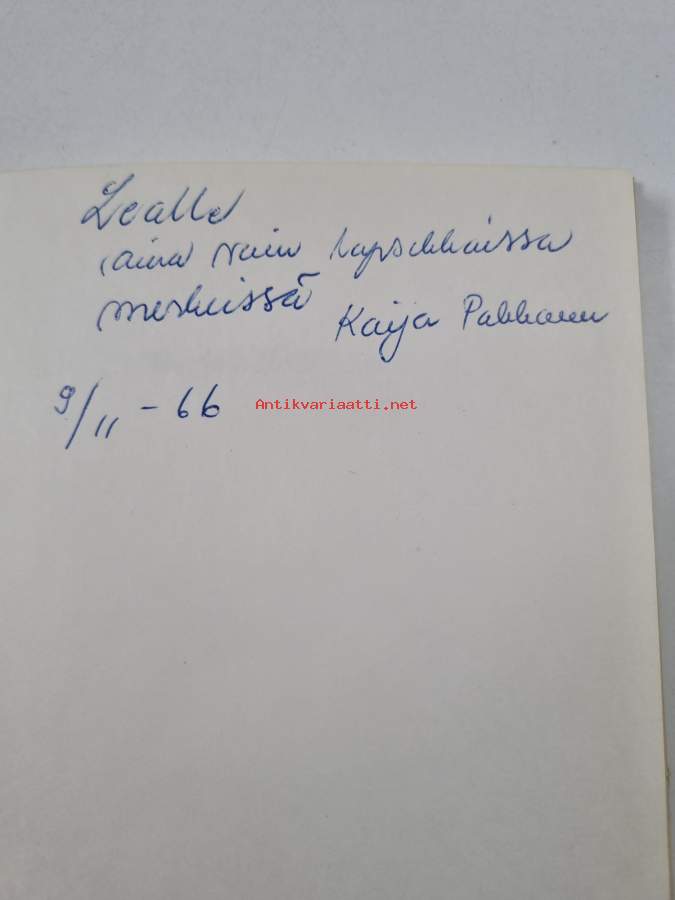 Lealle
aina vain lapsekkaissa
merkeissä
Kaija Pakkanen
9/11 - 66
Antikvariaatti.net